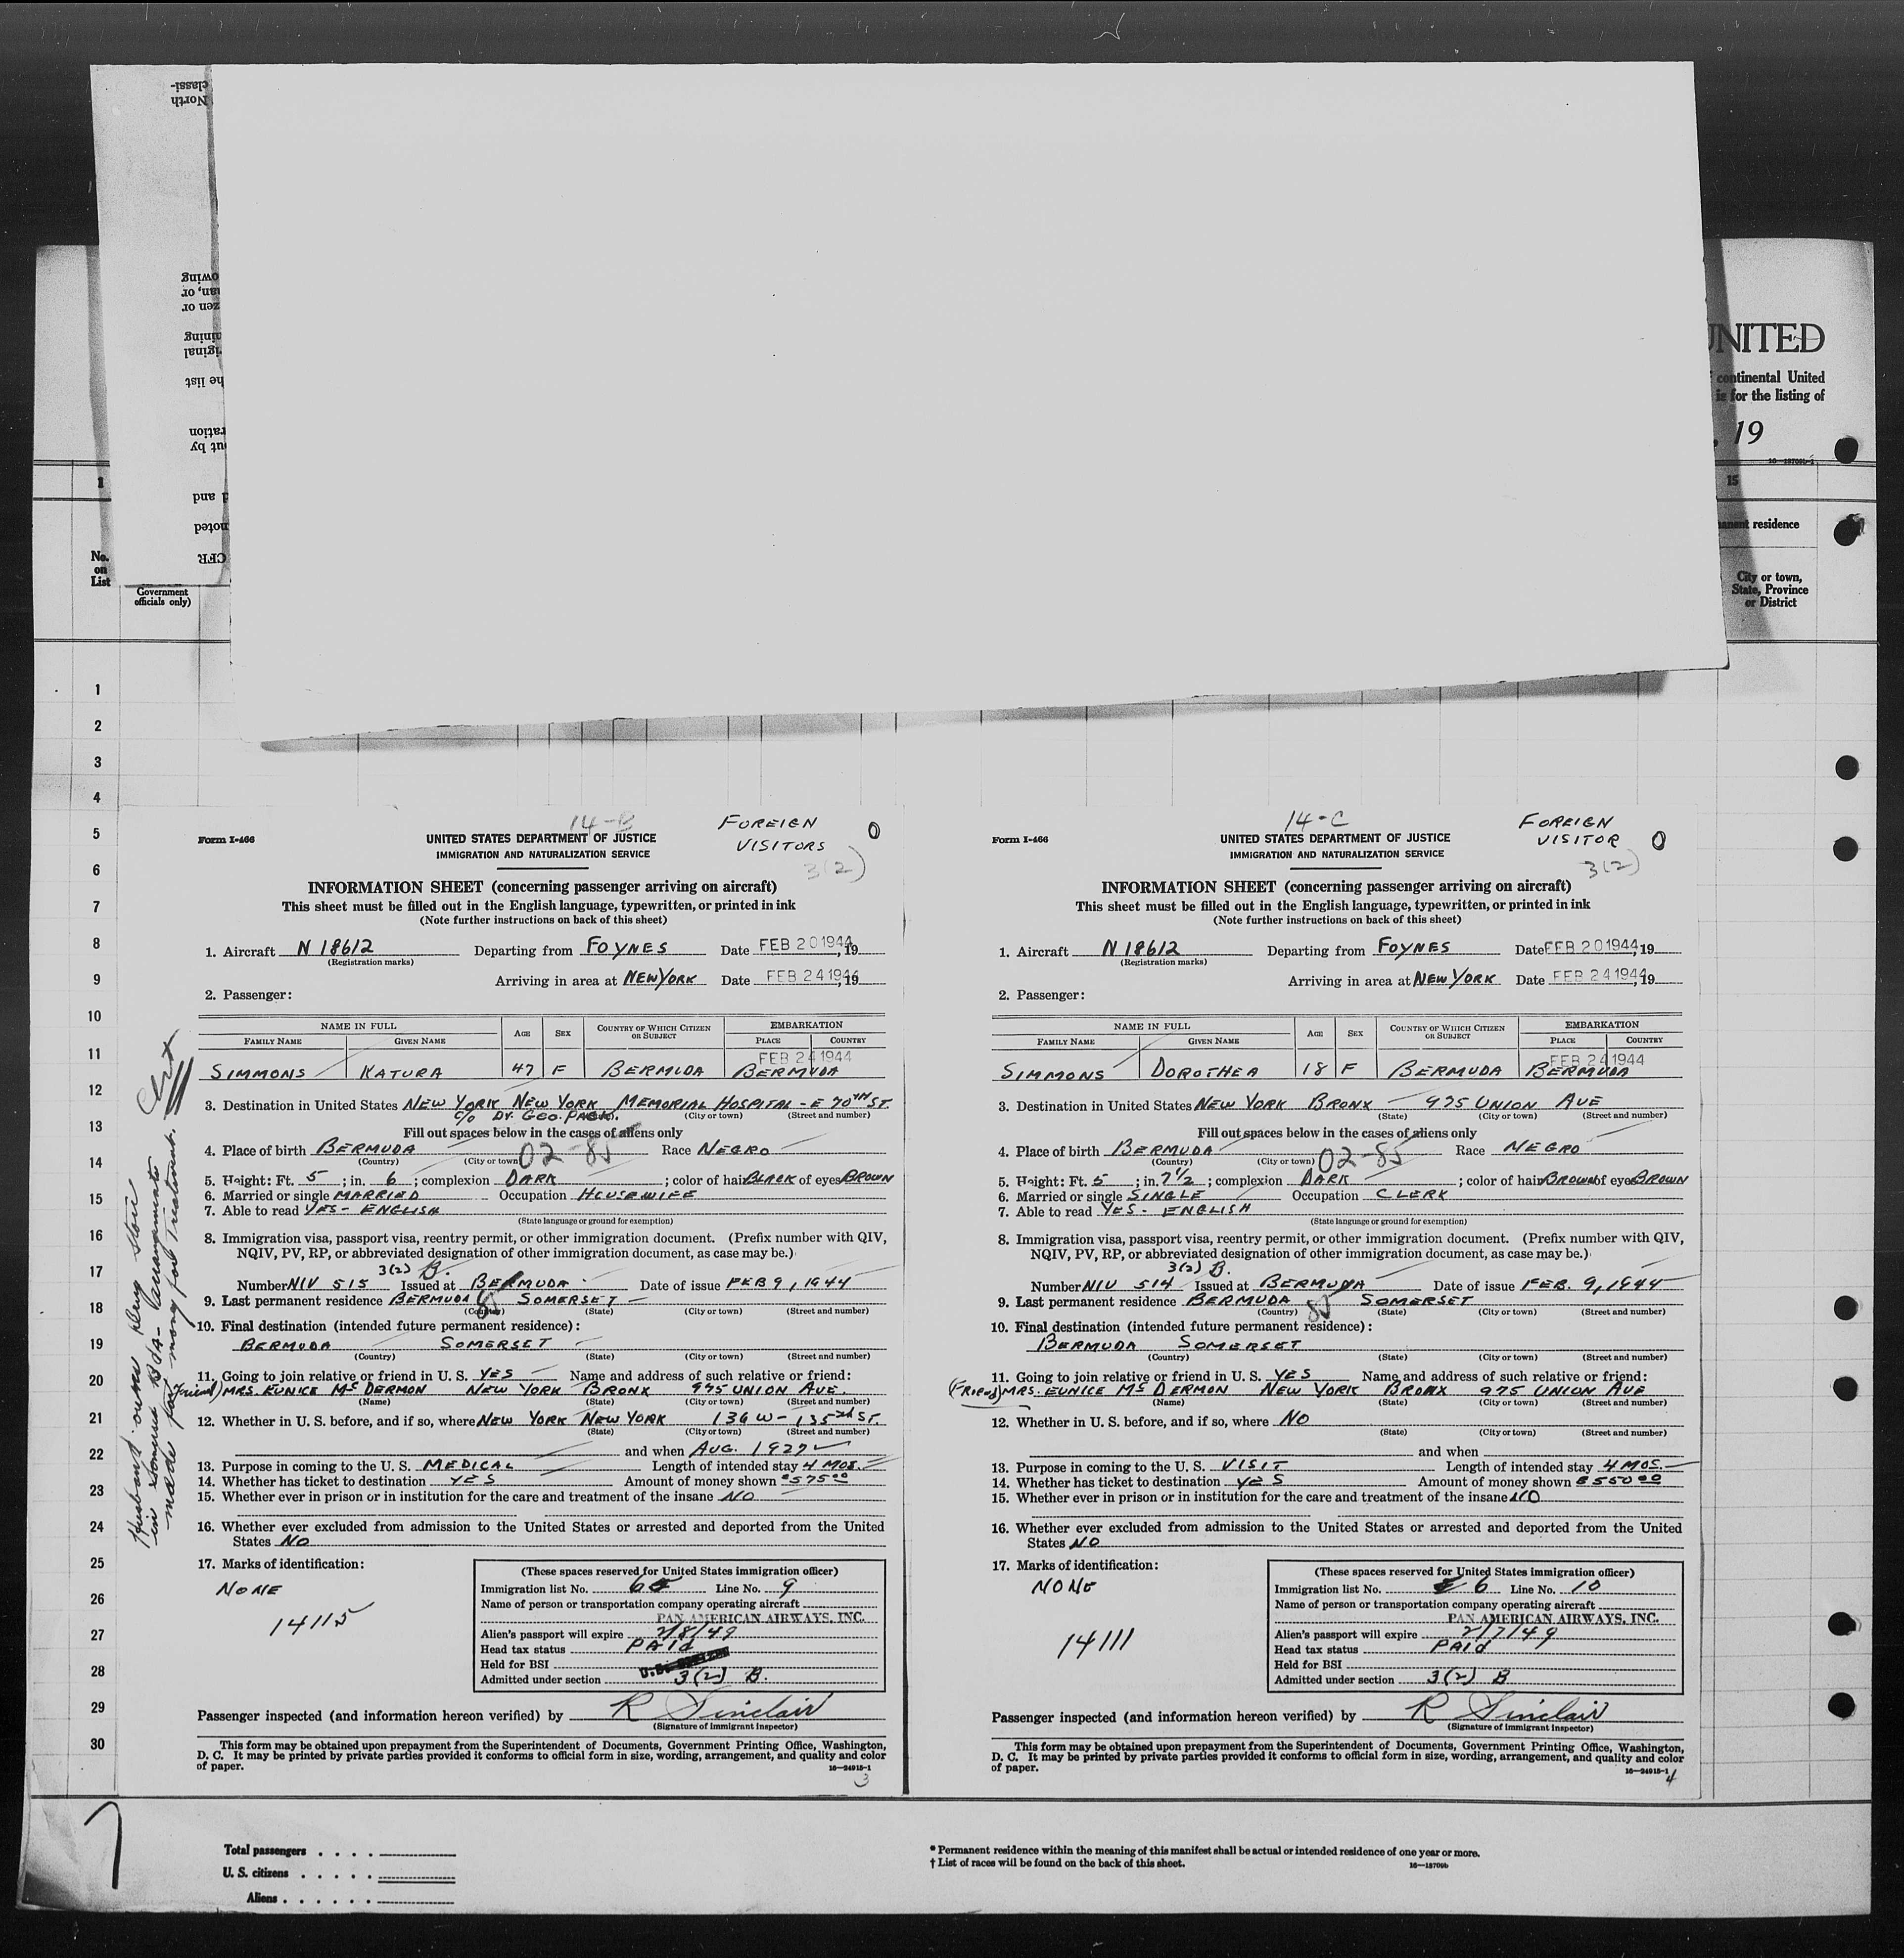 classi-
North
owing
an, or
zen or
mining
riginal
he list
ration
out by
d and
noted
CFR
UNITED
continental United
is for the listing of
, 19
16—18709b-1
1
15
anent residence
No.
on
List
Government
officials only)
City or town,
State, Province
or District
1
2
3
4
5
6
7
8
9
10
11
12
13
14
15
16
17
18
19
20
21
22
23
24
25
26
27
28
29
30
Husband owns
in Somerset Bda- arrangements
made for money for treatment.
14-B
FOREIGN
VISITORS
0
3(2)
Form I-466
UNITED STATES DEPARTMENT OF JUSTICE
IMMIGRATION AND NATURALIZATION SERVICE
INFORMATION SHEET (concerning passenger arriving on aircraft)
This sheet must be filled out in the English language, typewritten, or printed in ink
(Note further instructions on back of this sheet)
1. Aircraft N 18612 Departing from FOYNES Date FEB 20 1944, 19
(Registration marks)
Arriving in area at NEW YORK Date FEB 24 1944, 19
2. Passenger:
NAME IN FULL AGE SEX COUNTRY OF WHICH CITIZEN OR SUBJECT EMBARKATION
FAMILY NAME GIVEN NAME PLACE COUNTRY
FEB 24 1944
SIMMONS KATURA 47 F BERMUDA BERMUDA
3. Destination in United States NEW YORK NEW YORK MEMORIAL HOSPITAL - E 70TH ST.
C/O DR. GEO. PACK. (City or town) (Street and number)
Fill out spaces below in the cases of aliens only
4. Place of birth BERMUDA 02-85 Race NEGRO
(Country) (City or town)
5. Height: Ft. 5; in. 6; complexion DARK; color of hair BLACK of eyes BROWN
6. Married or single MARRIED Occupation HOUSEWIFE
7. Able to read YES - ENGLISH
(State language or ground for exemption)
8. Immigration visa, passport visa, reentry permit, or other immigration document. (Prefix number with QIV,
NQIV, PV, RP, or abbreviated designation of other immigration document, as case may be.)
3(2) B.
Number NIV 515 Issued at BERMUDA Date of issue FEB 9, 1944
9. Last permanent residence BERMUDA 85 SOMERSET
(Country) (State) (City or town) (Street and number)
10. Final destination (intended future permanent residence):
BERMUDA SOMERSET
(Country) (State) (City or town) (Street and number)
11. Going to join relative or friend in U. S. YES Name and address of such relative or friend:
(Friend) MRS. EUNICE McDERMON NEW YORK BRONX 975 UNION AVE.
(Name) (State) (City or town) (Street and number)
12. Whether in U. S. before, and if so, where NEW YORK NEW YORK 136 W - 135 ST.
(State) (City or town) (Street and number)
and when AUG. 1927
13. Purpose in coming to the U. S. MEDICAL Length of intended stay 4 MOS.
14. Whether has ticket to destination YES Amount of money shown $575 00
15. Whether ever in prison or in institution for the care and treatment of the insane NO
16. Whether ever excluded from admission to the United States or arrested and deported from the United
States NO
17. Marks of identification:
NONE
14115
(These spaces reserved for United States immigration officer)
Immigration list No. 6 Line No. 9
Name of person or transportation company operating aircraft
PAN AMERICAN AIRWAYS, INC.
Alien's passport will expire 2/8/49
Head tax status PAId
Held for BSI
Admitted under section 3(2) B.
Passenger inspected (and information hereon verified) by R Sinclair
(Signature of immigrant inspector)
This form may be obtained upon prepayment from the Superintendent of Documents, Government Printing Office, Washington,
D. C. It may be printed by private parties provided it conforms to official form in size, wording, arrangement, and quality and color
of paper.
16—24915-1
3
14-C
FOREIGN
VISITOR
0
3(2)
Form I-466
UNITED STATES DEPARTMENT OF JUSTICE
IMMIGRATION AND NATURALIZATION SERVICE
INFORMATION SHEET (concerning passenger arriving on aircraft)
This sheet must be filled out in the English language, typewritten, or printed in ink
(Note further instructions on back of this sheet)
1. Aircraft N 18612 Departing from FOYNES Date FEB 20 1944, 19
(Registration marks)
Arriving in area at NEW YORK Date FEB 24 1944, 19
2. Passenger:
NAME IN FULL AGE SEX COUNTRY OF WHICH CITIZEN OR SUBJECT EMBARKATION
FAMILY NAME GIVEN NAME PLACE COUNTRY
FEB 24 1944
SIMMONS DOROTHEA 18 F BERMUDA BERMUDA
3. Destination in United States NEW YORK BRONX 975 UNION AVE
(State) (City or town) (Street and number)
Fill out spaces below in the cases of aliens only
4. Place of birth BERMUDA 02-85 Race NEGRO
(Country) (City or town)
5. Height: Ft. 5; in. 7 1/2; complexion DARK; color of hair BROWN of eyes BROWN
6. Married or single SINGLE Occupation CLERK
7. Able to read YES - ENGLISH
(State language or ground for exemption)
8. Immigration visa, passport visa, reentry permit, or other immigration document. (Prefix number with QIV,
NQIV, PV, RP, or abbreviated designation of other immigration document, as case may be.)
3(2) B.
Number NIV 514 Issued at BERMUDA Date of issue FEB. 9, 1944
9. Last permanent residence BERMUDA 85 SOMERSET
(Country) (State) (City or town) (Street and number)
10. Final destination (intended future permanent residence):
BERMUDA SOMERSET
(Country) (State) (City or town) (Street and number)
11. Going to join relative or friend in U. S. YES Name and address of such relative or friend:
(Friend) MRS. EUNICE McDERMON NEW YORK BRONX 975 UNION AVE
(Name) (State) (City or town) (Street and number)
12. Whether in U. S. before, and if so, where NO
(State) (City or town) (Street and number)
and when
13. Purpose in coming to the U. S. VISIT Length of intended stay 4 MOS.
14. Whether has ticket to destination YES Amount of money shown $550 00
15. Whether ever in prison or in institution for the care and treatment of the insane NO
16. Whether ever excluded from admission to the United States or arrested and deported from the United
States NO
17. Marks of identification:
NONE
14111
(These spaces reserved for United States immigration officer)
Immigration list No. 6 Line No. 10
Name of person or transportation company operating aircraft
PAN AMERICAN AIRWAYS, INC.
Alien's passport will expire 2/7/49
Head tax status PAId
Held for BSI
Admitted under section 3(2) B
Passenger inspected (and information hereon verified) by R Sinclair
(Signature of immigrant inspector)
This form may be obtained upon prepayment from the Superintendent of Documents, Government Printing Office, Washington,
D. C. It may be printed by private parties provided it conforms to official form in size, wording, arrangement, and quality and color
of paper.
16—24915-1
4
7
Total passengers
U. S. citizens
Aliens
* Permanent residence within the meaning of this manifest shall be actual or intended residence of one year or more.
† List of races will be found on the back of this sheet.
16—18709b